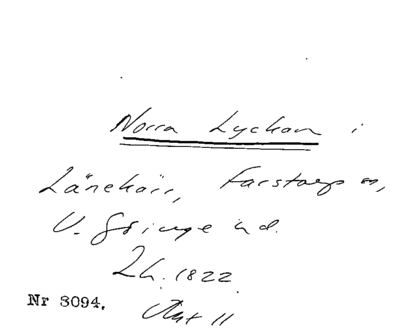 Norra Lyckan i
Lånekärr, Farstorps sn,
V. Göinge hd.
Lh. 1822.
Nr 3094. Akt 11